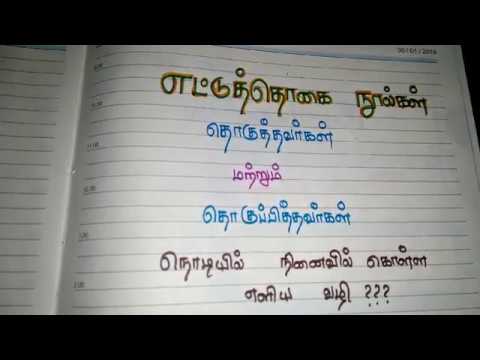 30/01/2019
எட்டுத்தொகை நூல்கள்
தொகுத்தவர்கள்
மற்றும்
தொகுப்பித்தவர்கள்
நொடியில் நினைவில் கொள்ள
எளிய வழி ???